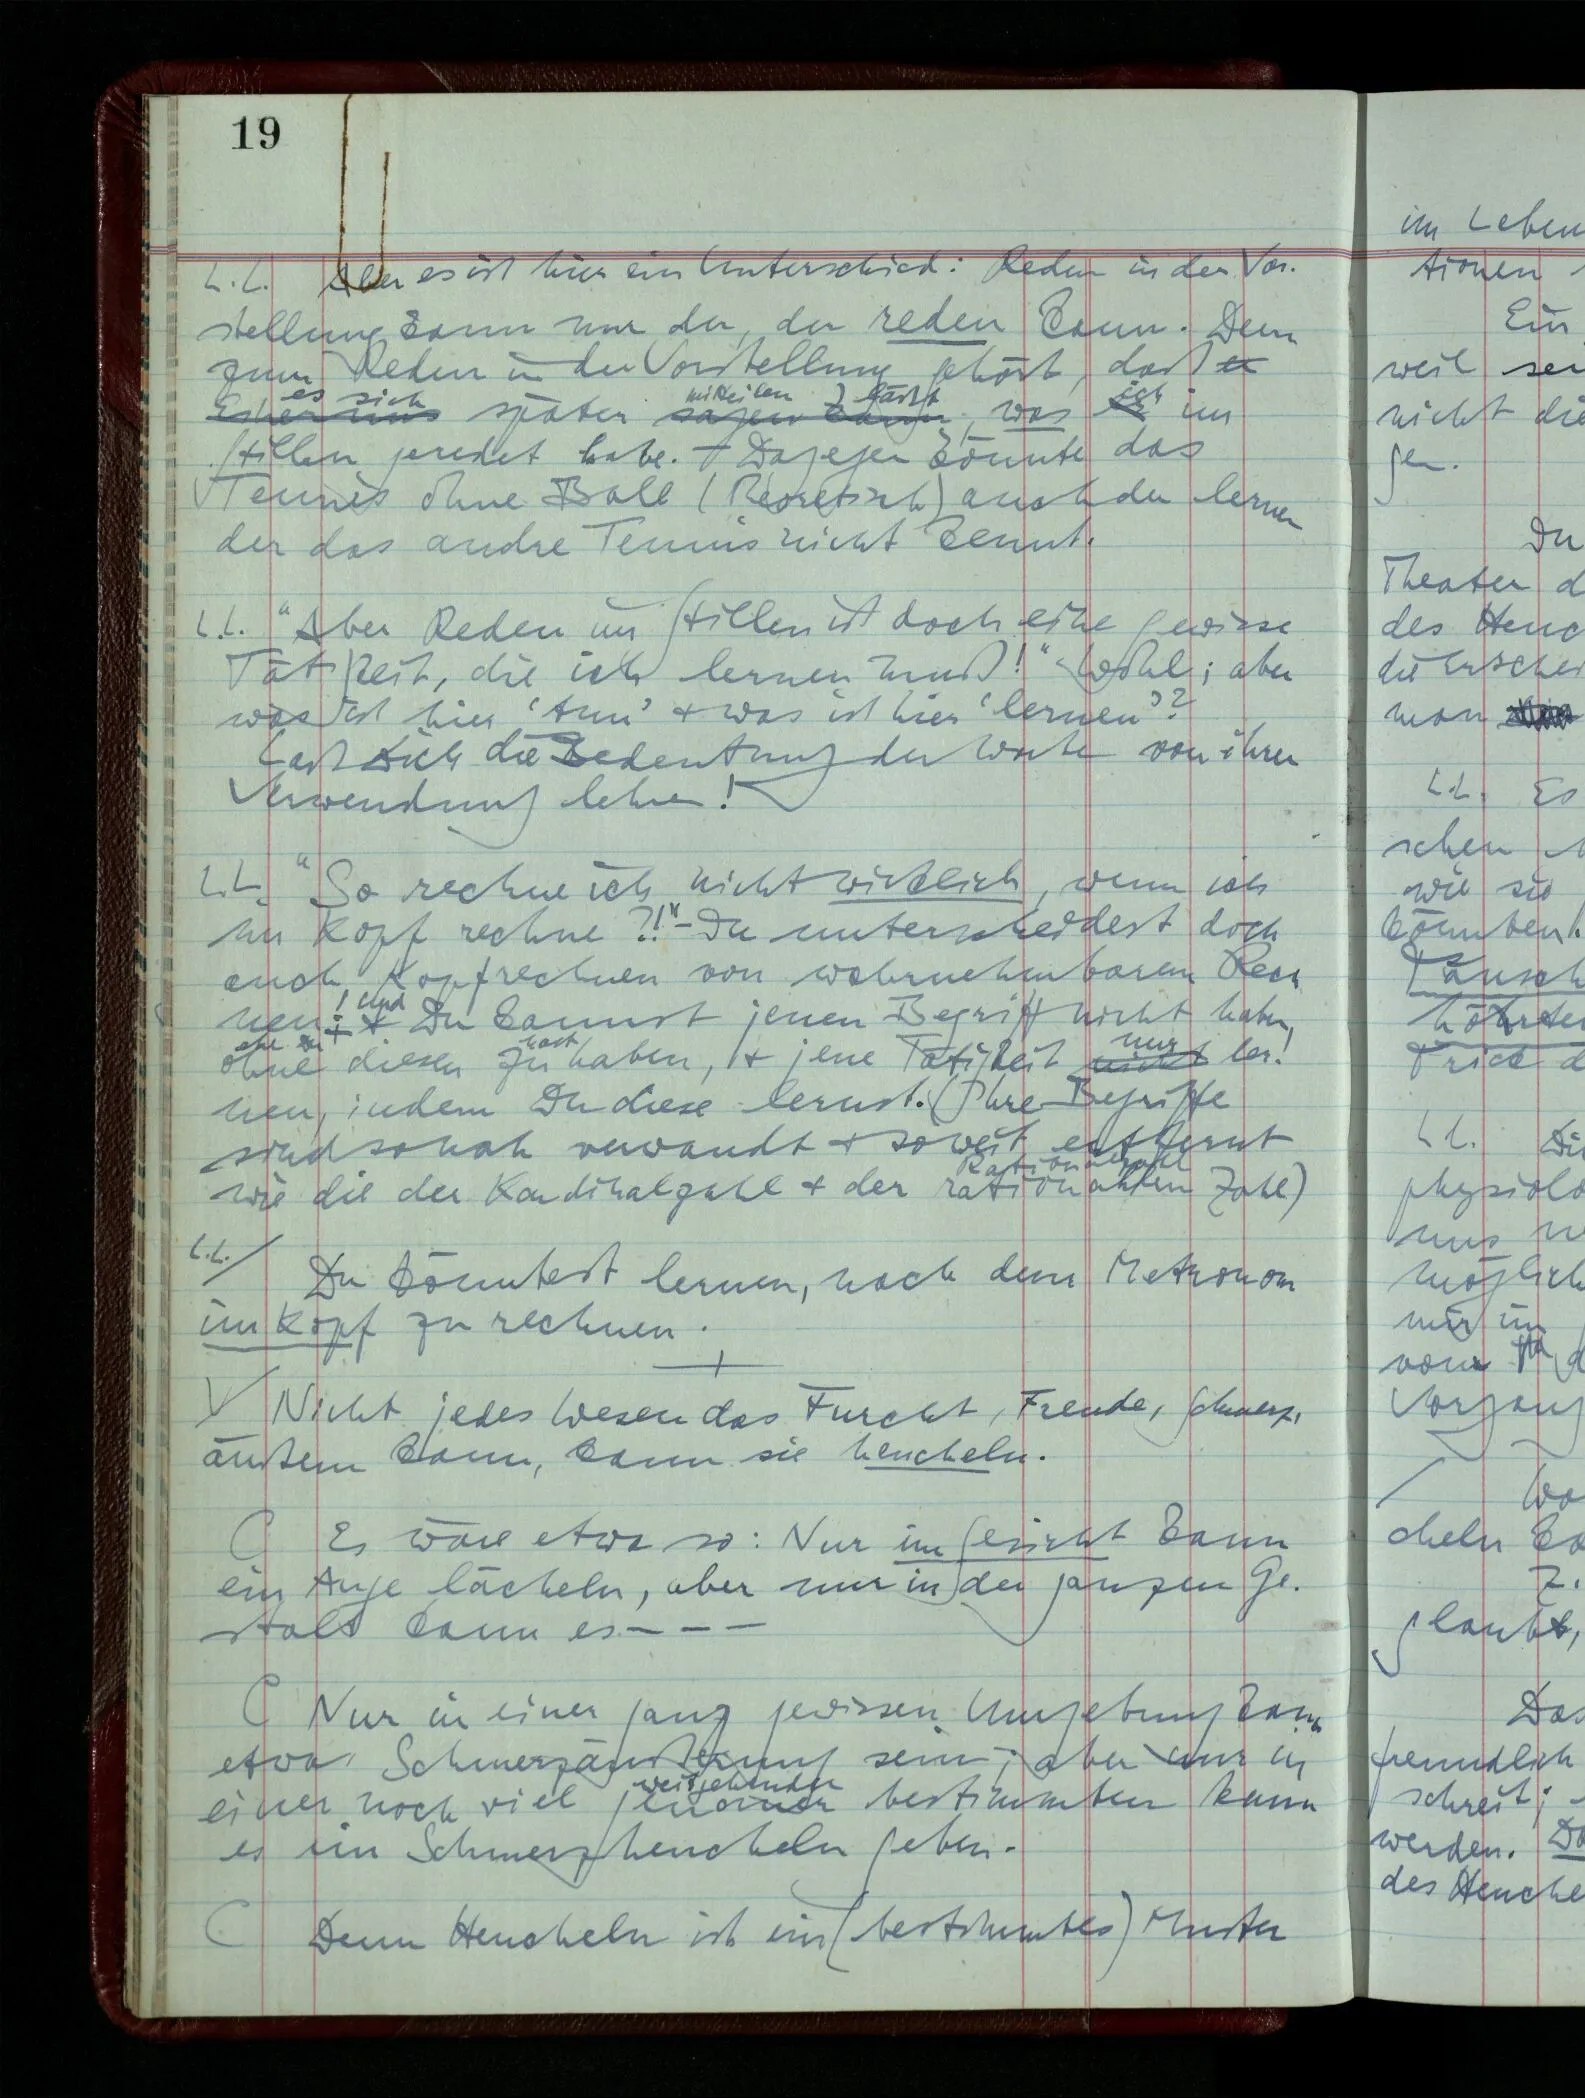 19
L.L. Aber es ist hier ein Unterschied: Reden in der Vor-
stellung kann nur der, der reden kann. Denn
zum Reden in der Vorstellung gehört, daß er
es sich mitteilen läßt ich
später sagen kann, was er im
Stillen geredet habe. – Dagegen könnte das
Tennis ohne Ball (theoretisch) auch der lernen
der das andre Tennis nicht kennt.
L.L. "Aber Reden im Stillen ist doch eine gewisse
Tätigkeit, die ich lernen muß!" Wohl; aber
was ist hier 'tun' & was ist hier 'lernen'?
Laß Dich die Bedeutung der Worte von ihren
Verwendungen lehren!
L.L. "So rechne ich nicht wirklich, wenn ich
im Kopf rechne?!" – Du unterscheidest doch
auch Kopfrechnen von wahrnehmbarem Rech
! Und
nen; & Du kannst jenen Begriff nicht haben,
ehe Du hast nur
ohne diesen zu haben, & jene Tätigkeit nicht ler-
nen, indem Du diese lernst. (Ihre Begriffe
sind so nah verwandt & so weit entfernt
Rationalzahl
wie die der Kardinalzahl & der rationalen Zahl)
L.L. / Du könntest lernen, nach dem Metronom
im Kopf zu rechnen.
V Nicht jedes Wesen das Furcht, Freude, Schmerz,
äußern kann, kann sie heucheln.
C Es wäre etwa so: Nur im Gesicht kann
ein Auge lächeln, aber nur in der ganzen Ge-
stalt kann es – – –
C Nur in einer ganz gewissen Umgebung kann
etwas Schmerzäußerung sein; aber nur in
weitgehender
einer noch viel bestimmten kann
es ein Schmerzheucheln geben.
C Denn Heucheln ist ein (bestimmtes) Muster
im Leben
tionen
Ein
weil
nicht die
gen.
Du
Theater d
des Heuc
die
man
L.L. Es
schen
wie sie
könnten.
Täusch
Trick d
L.L. Die
physiolo
uns
möglich
mir im
vom
Vorgang
/
cheln ka
Z.
glaubt,
Das
freundlich
schreit;
werden. Da
des Heuche